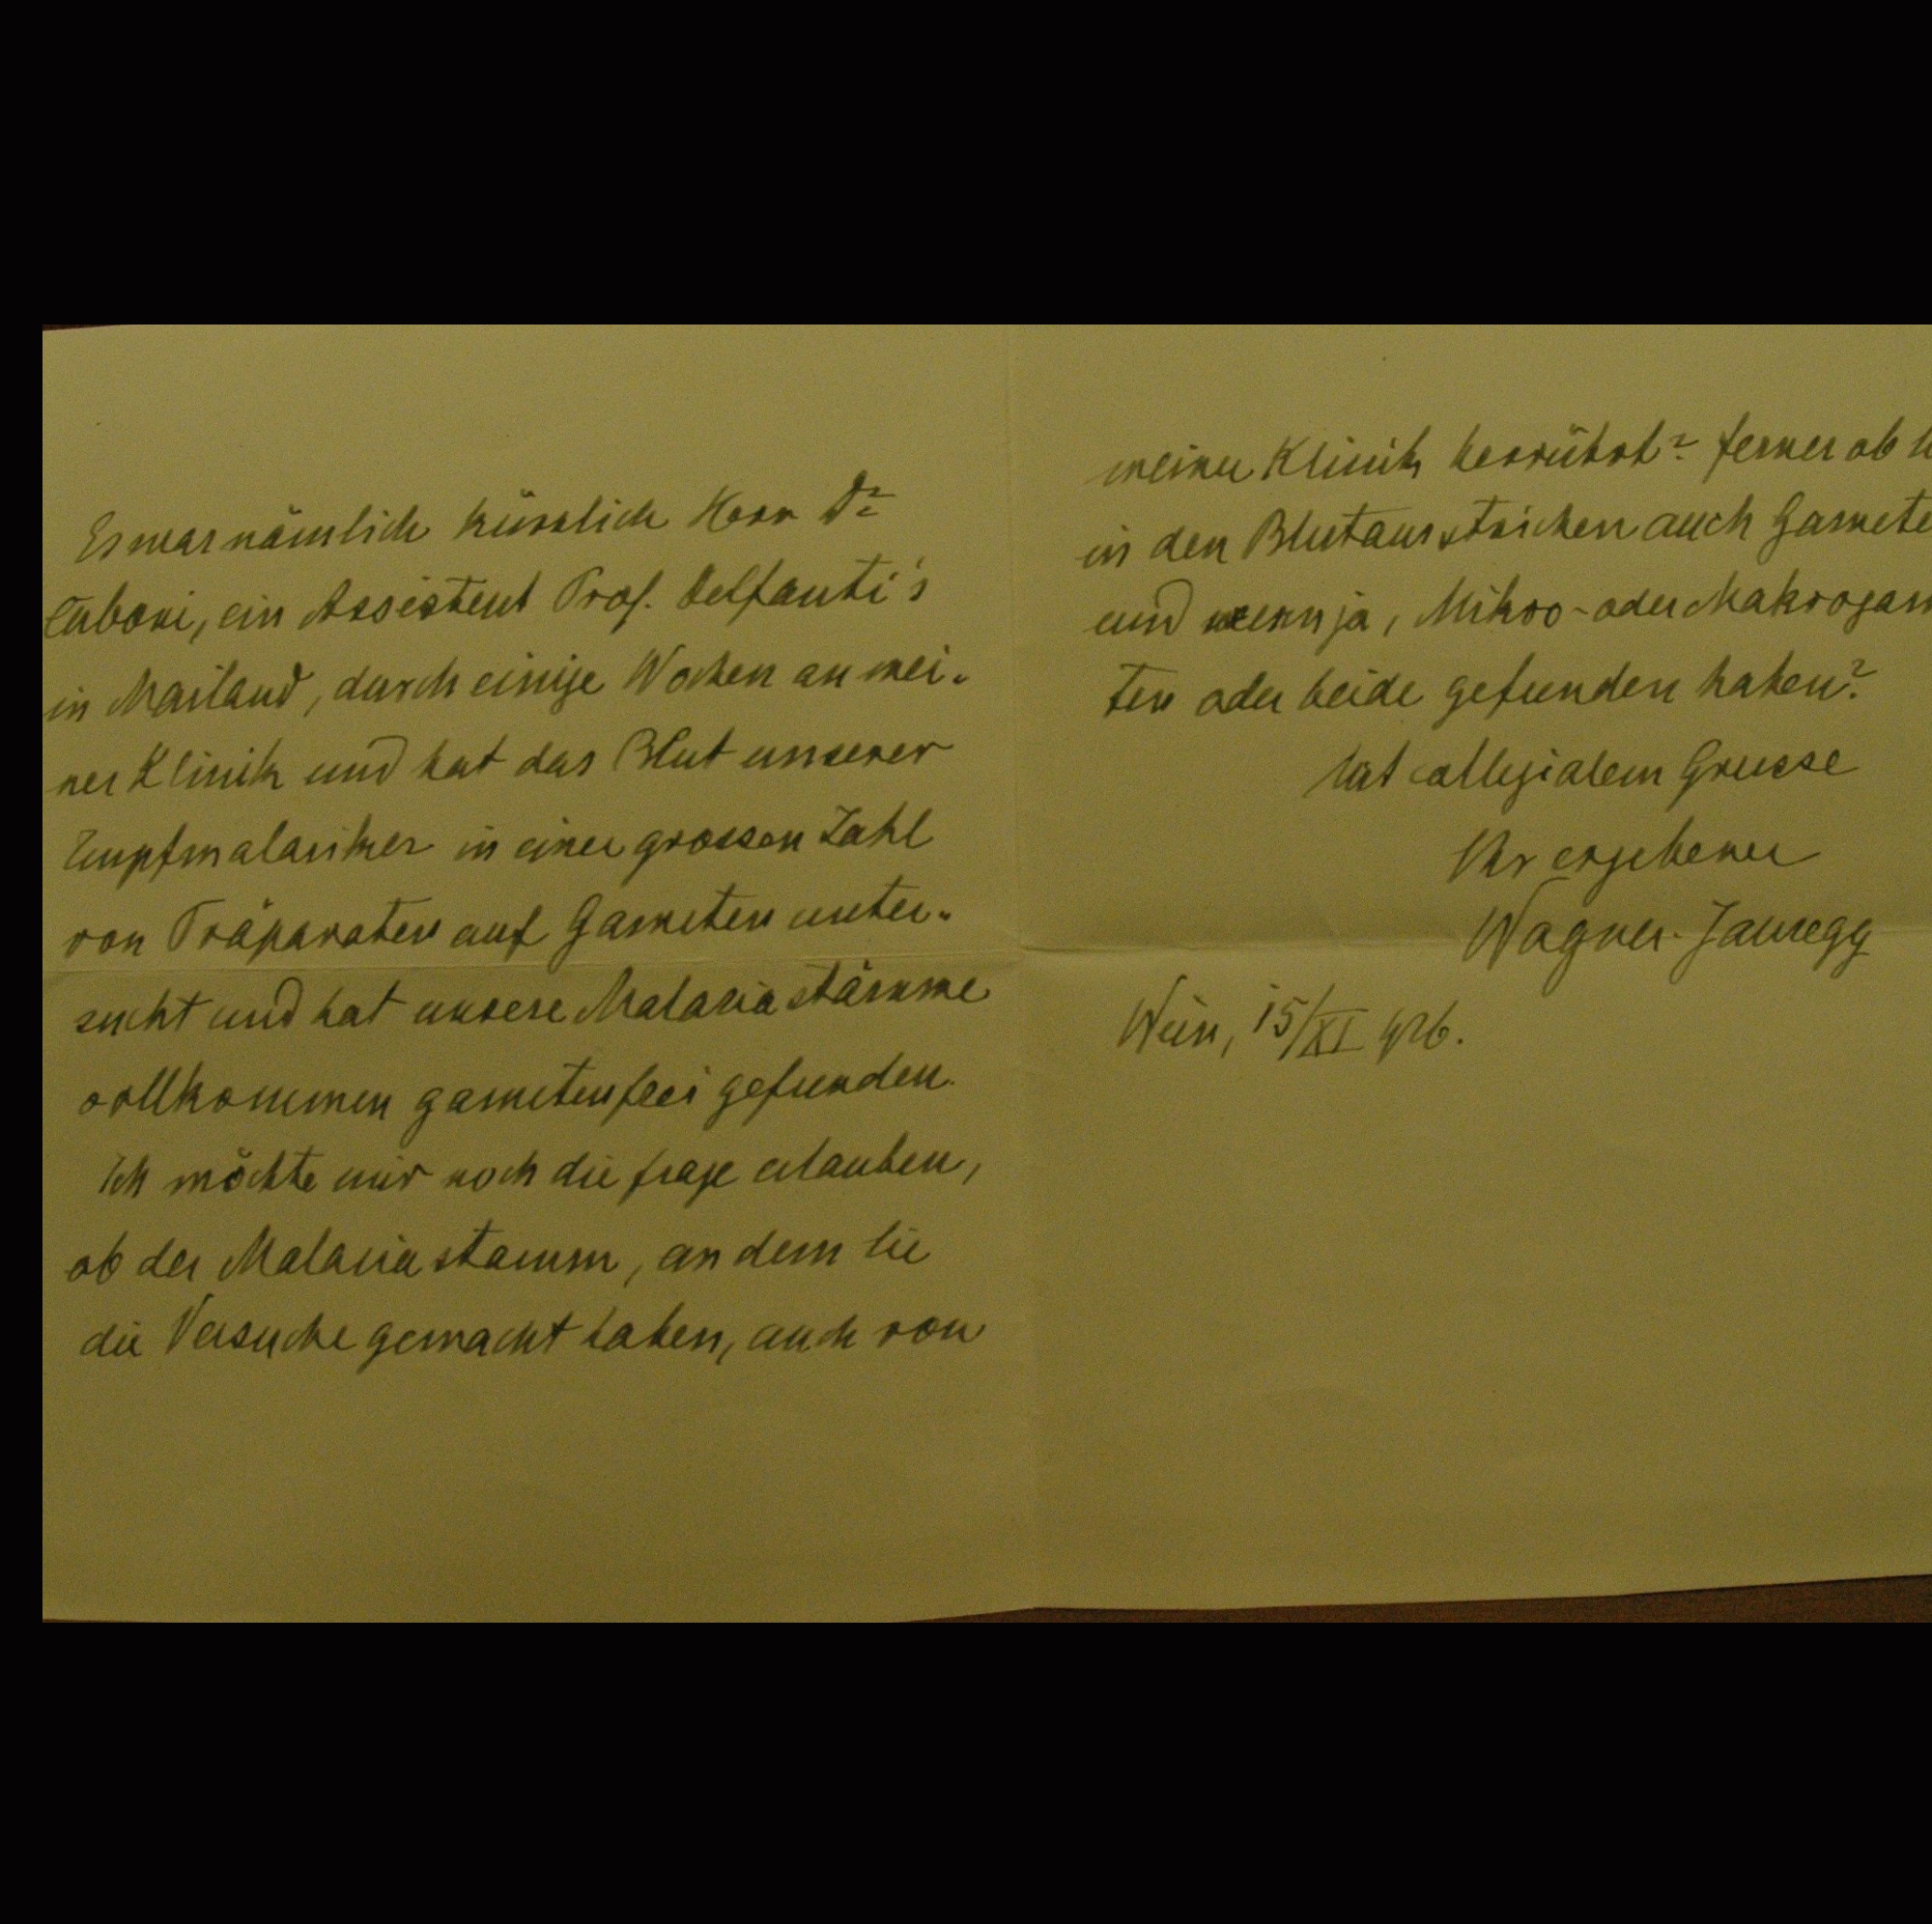 Es war nämlich kürzlich Herr Dr
in Mailand, durch einige Wochen an mei-
ner Klinik und hat das Blut unserer
Impfmalariker in einer grossen Zahl
von Präparaten auf Gameten unter-
sucht und hat unsere Malariastämme
vollkommen gametenfrei gefunden.
Ich möchte mir noch die Frage erlauben,
ob der Malariastamm, an dem Sie
die Versuche gemacht haben, auch von
meiner Klinik herrührt? Ferner ob
in den Blutausstrichen auch Gamete
und wenn ja, Mikro- oder Makrogam
ten oder beide gefunden haben?
Mit collegialem Grusse
Ihr ergebener
Wagner-Jauregg
Wien, 15/XI 926.